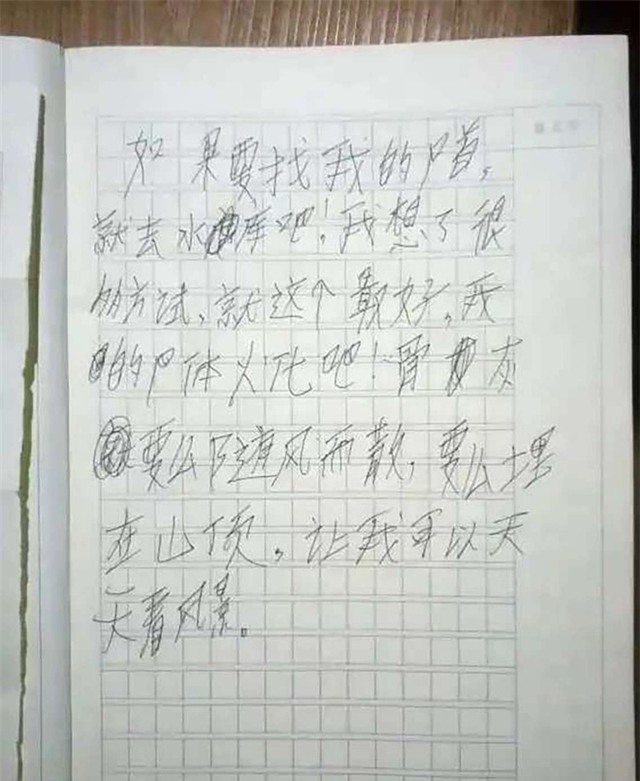 如果要找我的尸首，
就去水库吧！我想了很
多方试，就这个最好，我
的尸体火化吧！骨灰
要么随风而散，要么埋
在山顶，让我可以天
天看风景。